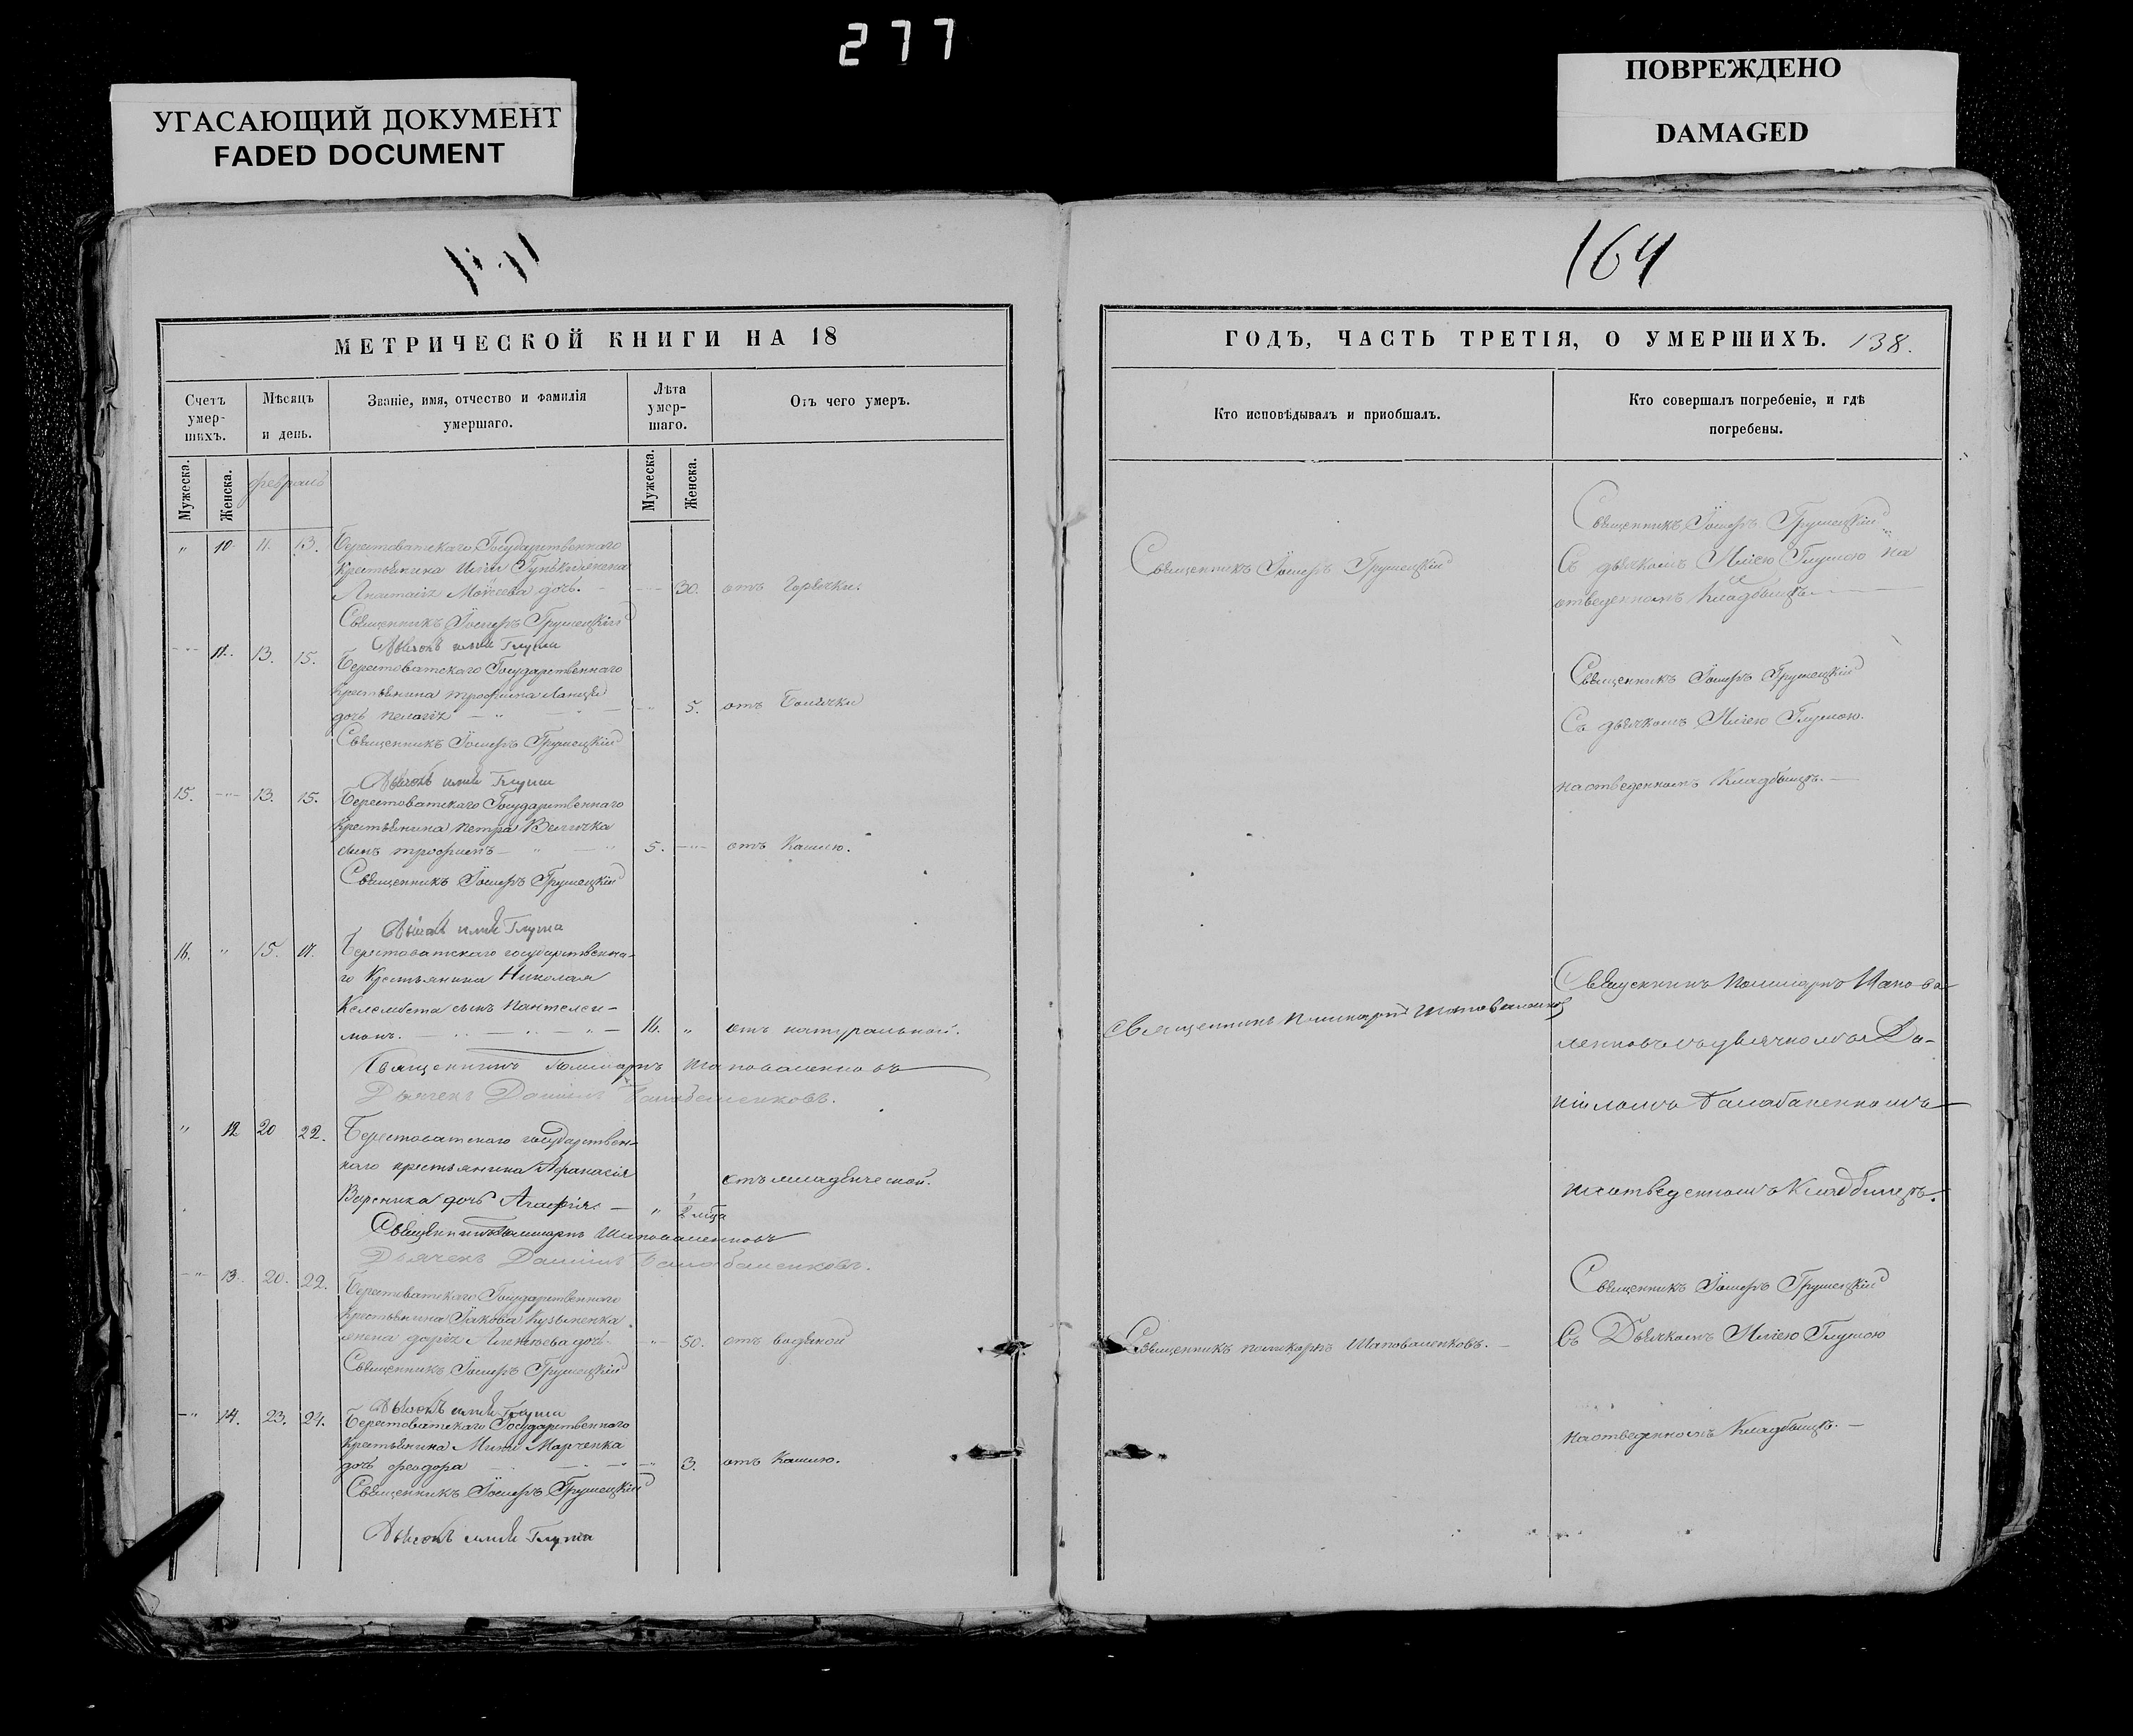 277
УГАСАЮЩИЙ ДОКУМЕНТ
FADED DOCUMENT
ПОВРЕЖДЕНО
DAMAGED
164
МЕТРИЧЕСКОЙ КНИГИ НА 18
Счетъ умер-шихъ.
Мѣсяцъ и день.
Званіе, имя, отчество и фамилія умершаго.
Лѣта умер-шаго.
Отъ чего умеръ.
Мужеска.
Женска.
Февраль
Мужеска.
Женска.
" 10. 11. 13. Берестоватскаго Государственнаго
крестьянина
Моѵсеева дочь. 30. отъ Горячки.
Священникъ Іосифъ Грушецкій
Дьячокъ Илія Глуша
11. 13. 15. Берестоватскаго Государственнаго
крестьянина трофима
дочь пелагія 5. отъ
Священникъ Іосифъ Грушецкій
Дьячокъ Илія Глуша
15. 13. 15. Берестоватскаго Государственнаго
крестьянина петра Величка
сынъ трофимъ 5. отъ Кашлю.
Священникъ Іосифъ Грушецкій
Дьячокъ Илія Глуша
16. " 15. 17. Берестоватскаго государственна-
го Крестьянина Николая
Келембета сынъ Пантелеи-
монъ. 16. " отъ натуральной.
Священникъ Поликарпъ Шаповаленковъ
Дьячекъ Даніилъ
" 12 20 22. Берестоватского государствен-
наго крестьянина Афанасія
отъ младенческой.
Вареника дочь Агафія "
Священникъ Поликарпъ Шаповаленковъ
Дьячекъ Даніилъ
13. 20. 22. Берестоватскаго Государственнаго
крестьянина Іакова Кузьменка
жена дарія дочь 50. отъ водяной
Священникъ Іосифъ Грушецкій
Дьячокъ Илія Глуша
14. 23. 24. Берестоватскаго Государственнаго
крестьянина Марченка
дочь феодора 3. отъ Кашлю.
Священникъ Іосифъ Грушецкій
Дьячокъ Илія Глуша
ГОДЪ, ЧАСТЬ ТРЕТІЯ, О УМЕРШИХЪ. 138.
Кто исповѣдывалъ и пріобщалъ.
Кто совершалъ погребеніе, и гдѣ погребены.
Священникъ Іосифъ Грушецкій
Священникъ Іосифъ Грушецкій
Съ дьячкомъ Иліею Глушою на
отведенномъ Кладбищѣ
Священникъ Іосифъ Грушецкій
Съ дьячкомъ Иліею Глушою.
на отведенномъ Кладбищѣ.
Священникъ Поликарпъ
Священникъ Поликарпъ Шапова-
ленковъ съ дьячкомъ Да-
ніиломъ
на отведенномъ Кладбищѣ.
Священникъ Поликарпъ Шаповаленковъ.
Священникъ Іосифъ Грушецкій
Съ Дьячкомъ Иліею Глушою
на отведенномъ Кладбищѣ.